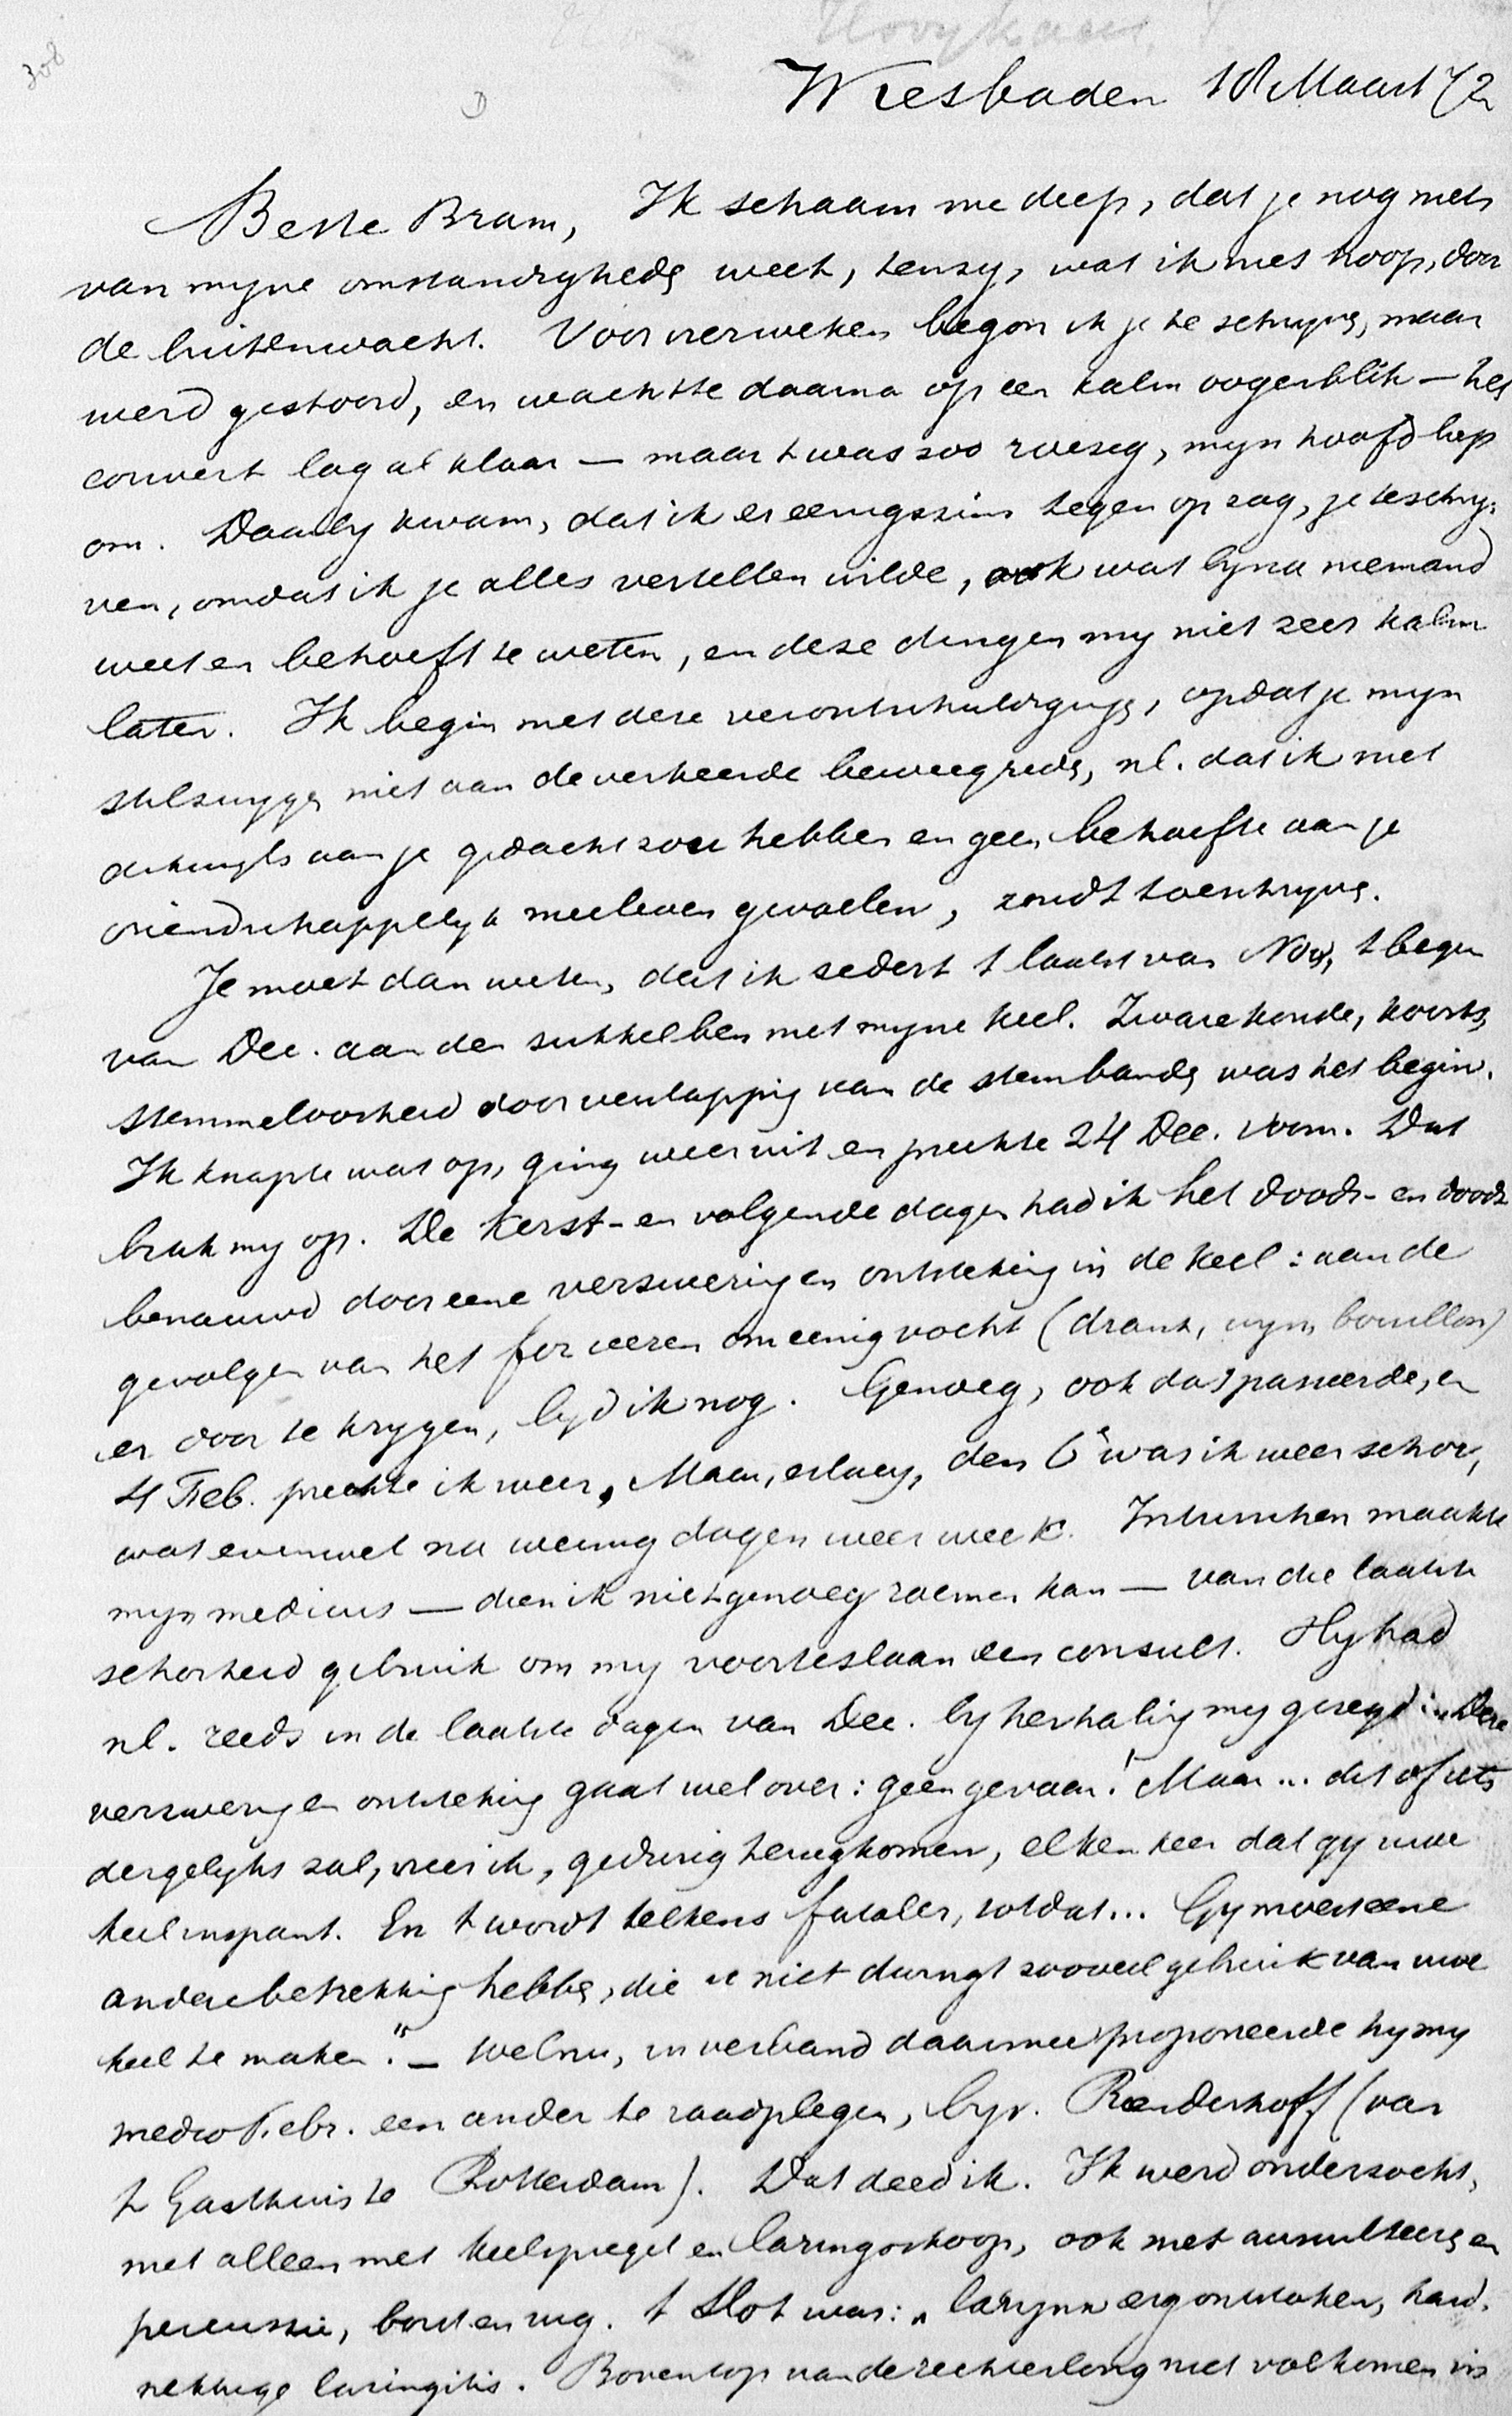 308
Wiesbaden 18 Maart 72
Beste Bram, Ik schaam me diep, dat je nog niets
van myne omstandigheden weet, tenzy, wat ik niet hoop, door
de buitenwacht. Voor vier weken begon ik je te schryven, maar
werd gestoord, en wachtte daarna op een kalm oogenblik — het
couvert lag al klaar — maar 't was zoo roezig, myn hoofd liep
om. Daarby kwam, dat ik er eenigszins tegen op zag, je te schry-
ven, omdat ik je alles vertellen wilde, ook wat byna niemand
weet en behoeft te weten, en deze dingen my niet zeer kalm
laten. Ik begin met deze verontschuldiging, opdat je myn
stilzwygen niet aan de verkeerde beweegreden, nl. dat ik niet
dikwyls aan je gedacht zou hebben en geen behoefte aan je
vriendschappelyk meeleven gevoelen, zoudt toeschryven.
Je moet dan weten, dat ik sedert 't laatst van Nov., 't begin
van Dec. aan den sukkel ben met myne keel. Zware koude, koorts,
stemmeloosheid door verslapping van de stembanden was het begin.
Ik knapte wat op, ging weer uit en preekte 24 Dec. voorm. Dat
brak my op. De Kerst- en volgende dagen had ik het doods- en doods-
benauwd door eene verzwering en ontsteking in de keel: aan de
gevolgen van het forceeren om eenig vocht (drank, wyn, bouillon)
er door te krygen, lyd ik nog. Genoeg, ook dat passeerde, en
4 Feb. preekte ik weer. Maar, helaas, den 6n was ik weer schor,
wat evenwel na weinig dagen weer week. Intusschen maakte
myn medicus — dien ik niet genoeg roemen kan — van die laatste
schorheid gebruik om my voorteslaan een consult. Hy had
nl. reeds in de laatste dagen van Dec. by herhaling my gezegd: „Deze
verzwering en ontsteking gaat wel over: geen gevaar! Maar... dit of iets
dergelyks zal, vrees ik, gedurig terugkomen, elken keer dat gy uwe
keel inspant. En 't wordt telkens fataler, totdat... Gy moest eene
andere betrekking hebben, die u niet dwingt zooveel gebruik van uwe
keel te maken." — Welnu, in verband daarmee proponeerde hy my
medio Febr. een ander te raadplegen, byv. Reenderhoff (van
't Gasthuis te Rotterdam). Dat deed ik. Ik werd onderzocht,
niet alleen met keelspiegel en laringoskoop, ook met ausculteeren en
percussie, borst en rug. 't Slot was: „larynx erg ontstoken, hard-
nekkige laringitis. Boventop van de rechterlong niet volkomen in